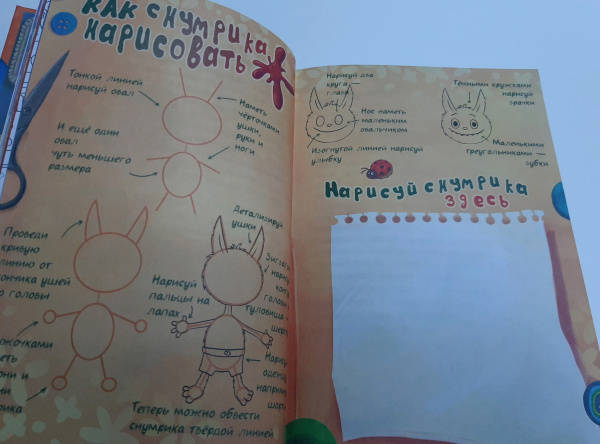 КАК СНУМРИКА
НАРИСОВАТЬ
Тонкой линией
нарисуй овал
Наметь
чёрточками
ушки,
руки и
ноги
И ещё один
овал
чуть меньшего
размера
Проведи
кривую
линию от
кончика ушей
до головы
Детализируй
ушки
Нарисуй
пальцы на
лапах
головы
туловища
Теперь можно обвести
снумрика твёрдой линией
Нарисуй два
круга
глаза
Нос наметь
маленьким
овальчиком
Изогнутой линией нарисуй
улыбку
Тёмными кружками
нарисуй
зрачки
Маленькими
треугольниками
зубки
Нарисуй снумрика
здесь